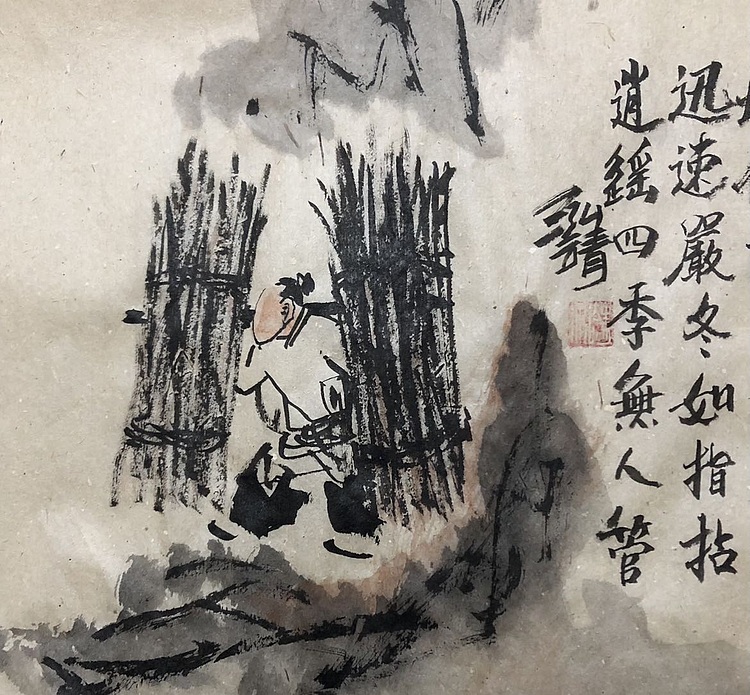 迅速嚴冬如指拈
逍遙四季無人管